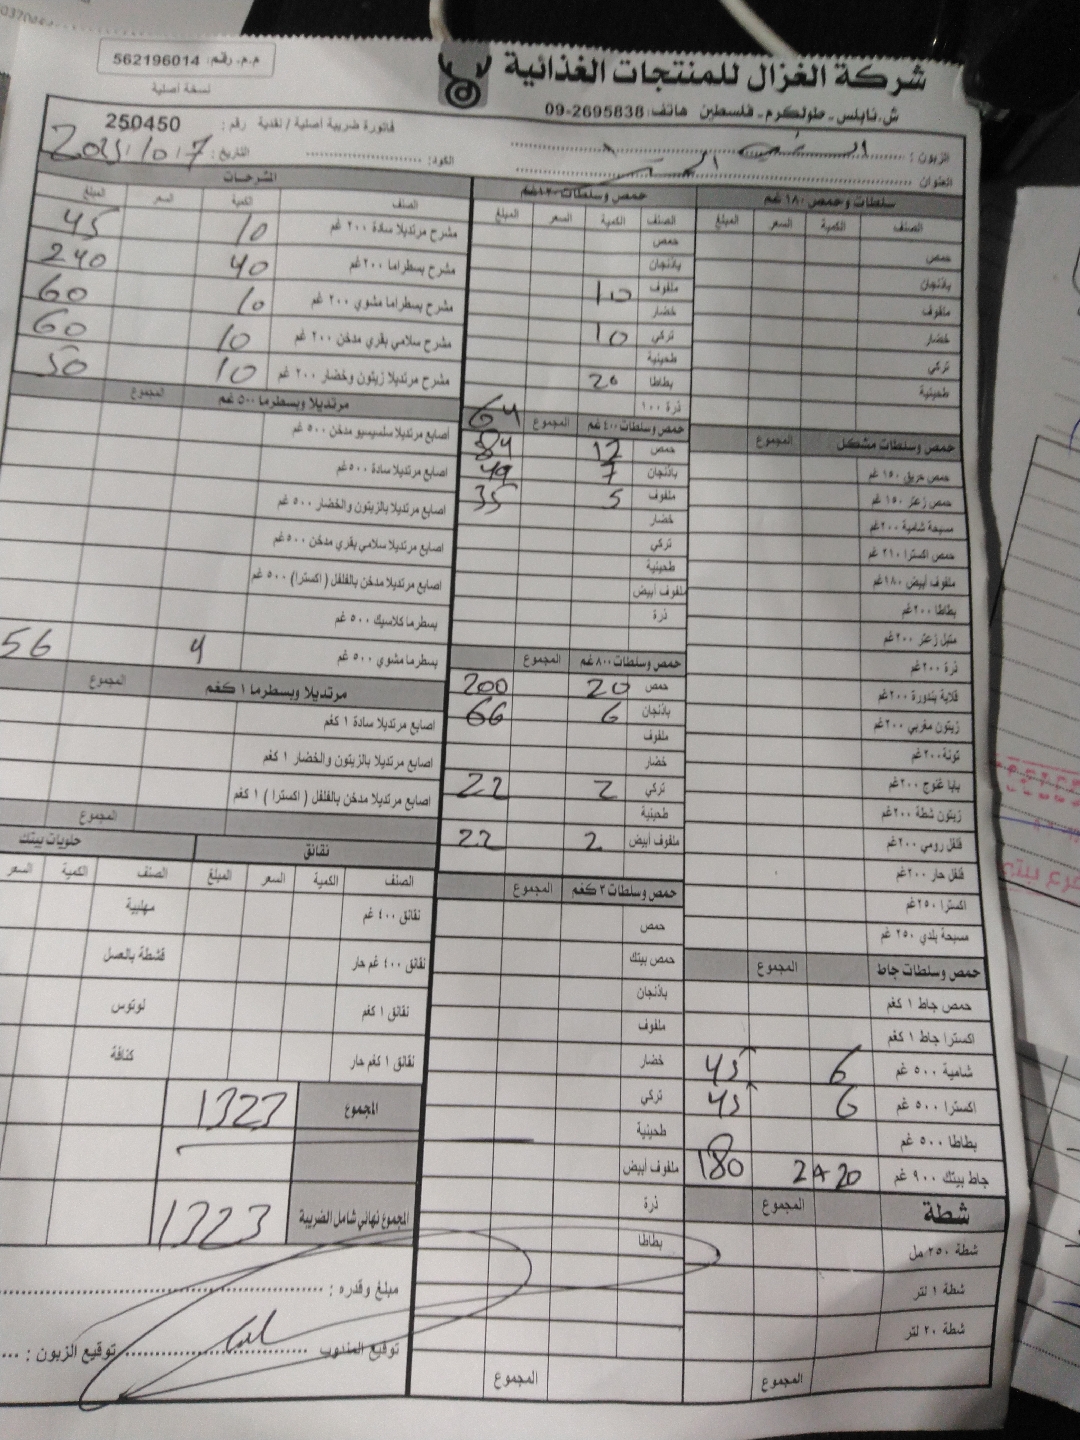 شركة الغزال للمنتجات الغذائية
ش.نابلس - طولكرم - فلسطين هاتف: 2695838-09
م.م. رقم: 562196014
نسخة أصلية
فاتورة ضريبية أصلية / نقدية رقم: 250450
الزبون:
العنوان
الكود: التاريخ:
سلطات وحمص ١٨٠ غم
الصنف الكمية السعر المبلغ
حمص
باذنجان
ملفوف
خضار
تركي
طحينية
حمص وسلطات مشكل المجموع
حمص حريق ١٥٠ غم
حمص زعتر ١٥٠ غم
مسبحة شامية ٢٠٠غم
حمص اكسترا ٢١٠ غم
ملفوف أبيض ١٨٠غم
بطاطا ٢٠٠غم
متبل زعتر ٢٠٠غم
ذرة ٢٠٠غم
قلاية بندورة ٢٠٠غم
زيتون مغربي ٢٠٠غم
تونة ٢٠٠غم
بابا غنوج ٢٠٠غم
زيتون شطة ٢٠٠غم
فلفل رومي ٢٠٠غم
فلفل حار ٢٠٠غم
اكسترا ٢٥٠غم
مسبحة بلدي ٢٥٠ غم
حمص وسلطات جاط المجموع
حمص جاط ١ كغم
اكسترا جاط ١ كغم
شامية ٥٠٠ غم 6 45
اكسترا ٥٠٠ غم 6 45
بطاطا ٥٠٠ غم
جاط بيتك ٩٠٠ غم 20 180
شطة المجموع
شطة ٢٥٠ مل
شطة ١ لتر
شطة ٢٠ لتر
المجموع
حمص وسلطات
الصنف الكمية السعر المبلغ
حمص
باذنجان
ملفوف 10
خضار
تركي 10
طحينية
بطاطا 20
ذرة ١٠٠ 64
حمص وسلطات ٤٠٠ غم المجموع
حمص 12 84
باذنجان 7 49
ملفوف 5 35
خضار
تركي
طحينية
ملفوف أبيض
ذرة
حمص وسلطات ٨٠٠ غم المجموع
حمص 20 200
باذنجان 6 66
ملفوف
خضار
تركي 2 22
طحينية
ملفوف أبيض 2 22
حمص وسلطات ٣ كغم المجموع
حمص
حمص بيتك
باذنجان
ملفوف
خضار
تركي
طحينية
ملفوف أبيض
ذرة
بطاطا
المجموع
المشرحات
الصنف الكمية السعر المبلغ
مشرح مرتديلا سادة ٢٠٠ غم 10 45
مشرح بسطراما ٢٠٠غم 40 240
مشرح بسطراما مشوي ٢٠٠ غم 10 60
مشرح سلامي بقري مدخن ٢٠٠ غم 10 60
مشرح مرتديلا زيتون وخضار ٢٠٠ غم 10 50
مرتديلا وبسطرما ٥٠٠ غم المجموع
اصابع مرتديلا سلسيسيو مدخن ٥٠٠ غم
اصابع مرتديلا سادة ٥٠٠غم
اصابع مرتديلا بالزيتون والخضار ٥٠٠ غم
اصابع مرتديلا سلامي بقري مدخن ٥٠٠غم
اصابع مرتديلا مدخن بالفلفل (اكسترا) ٥٠٠ غم
بسطرما كلاسيك ٥٠٠ غم
بسطرما مشوي ٥٠٠ غم 4 56
مرتديلا وبسطرما ١ كغم المجموع
اصابع مرتديلا سادة ١ كغم
اصابع مرتديلا بالزيتون والخضار ١ كغم
اصابع مرتديلا مدخن بالفلفل (اكسترا) ١ كغم
المجموع
نقانق حلويات بيتك
الصنف الكمية السعر المبلغ الصنف الكمية السعر
نقانق ٤٠٠ غم مهلبية
نقانق ٤٠٠ غم حار قشطة بالعسل
نقانق ١ كغم لوتوس
نقانق ١ كغم حار كنافة
المجموع 1323
المجموع نهائي شامل الضريبة 1323
مبلغ وقدره:
توقيع المندوب توقيع الزبون: